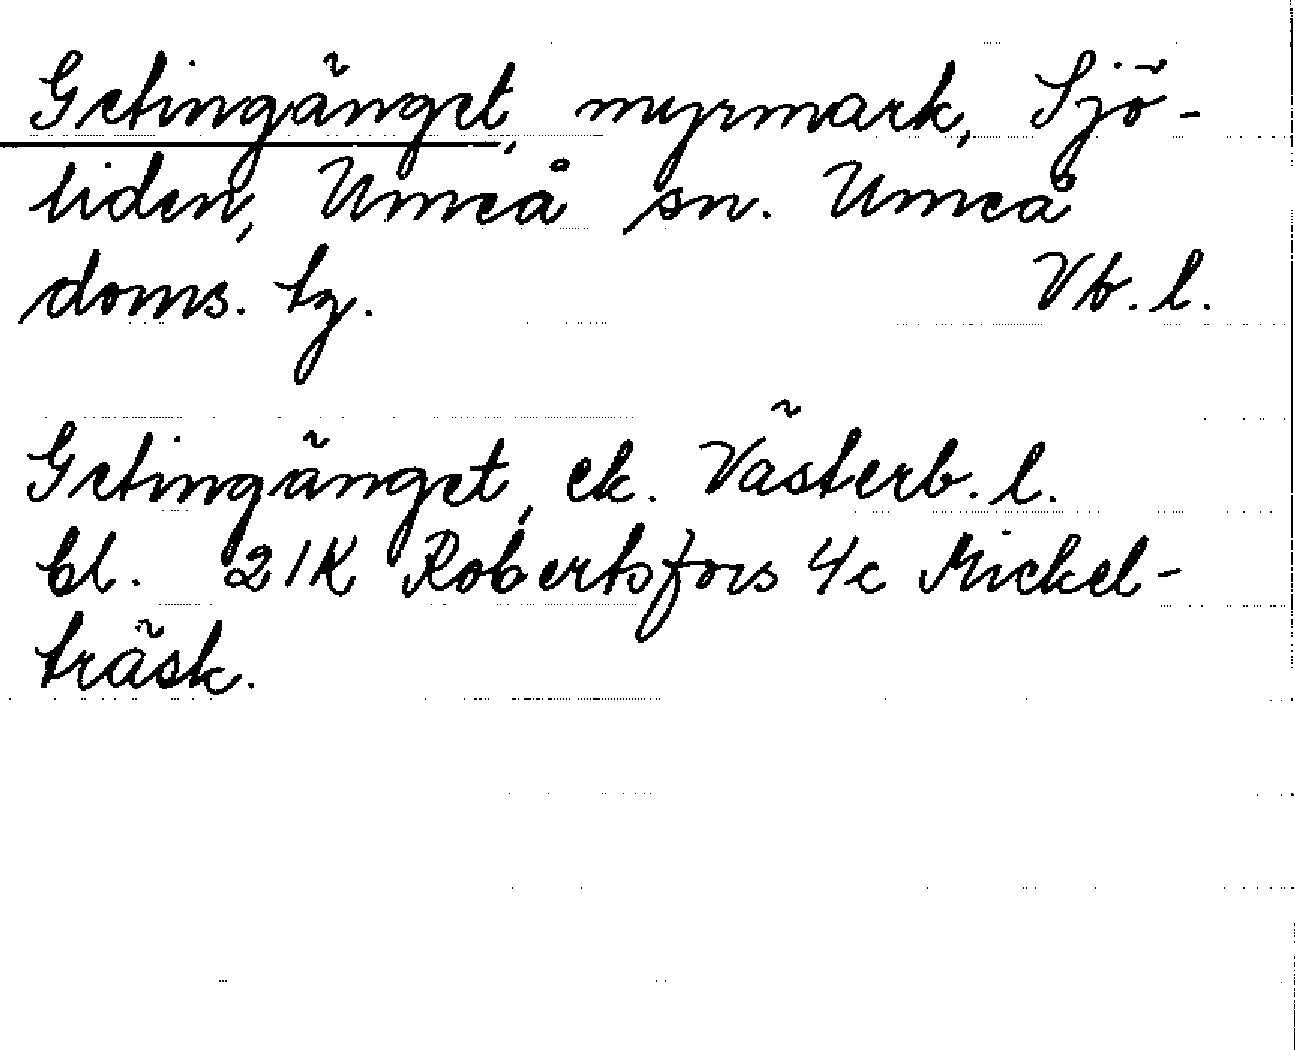 Getingänget, myrmark, Sjö-
liden, Umeå sn. Umeå
doms. tg. Vb. l.
Getingänget, ek. Västerb. l.
bl. 21K Robertsfors 4c Mickel-
träsk.